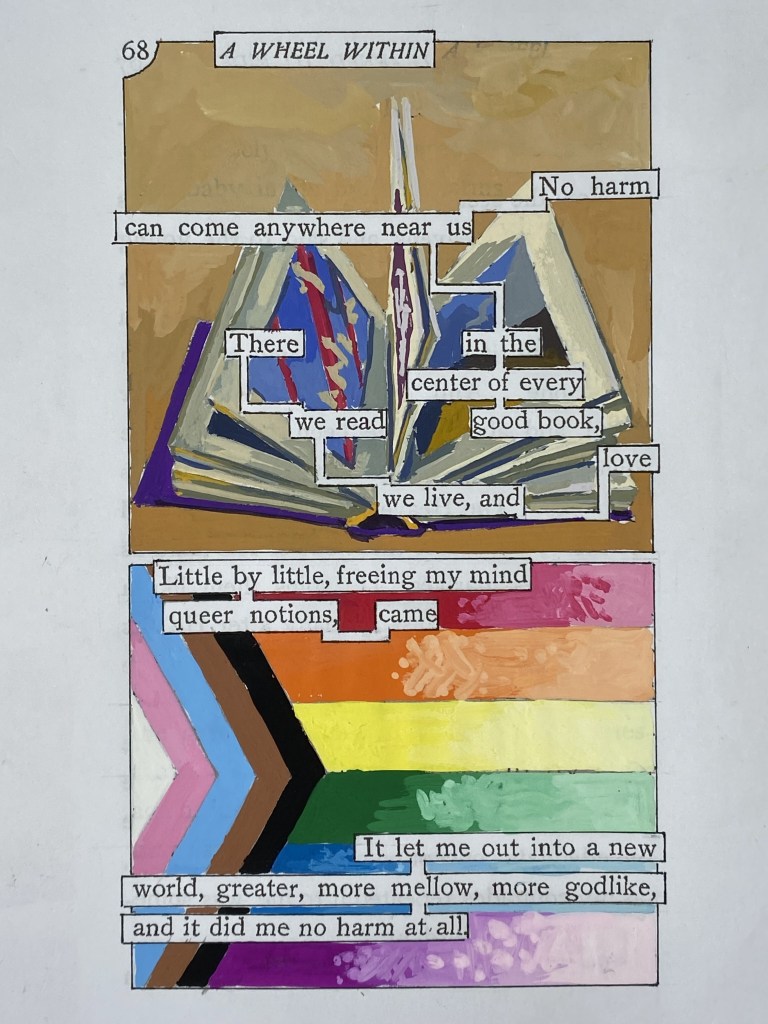 68
A WHEEL WITHIN
No harm
can come anywhere near us
in the
center of every
good book,
There
we read
we live, and
love
Little by little, freeing my mind
queer notions, came
It let me out into a new
world, greater, more mellow, more godlike,
and it did me no harm at all.